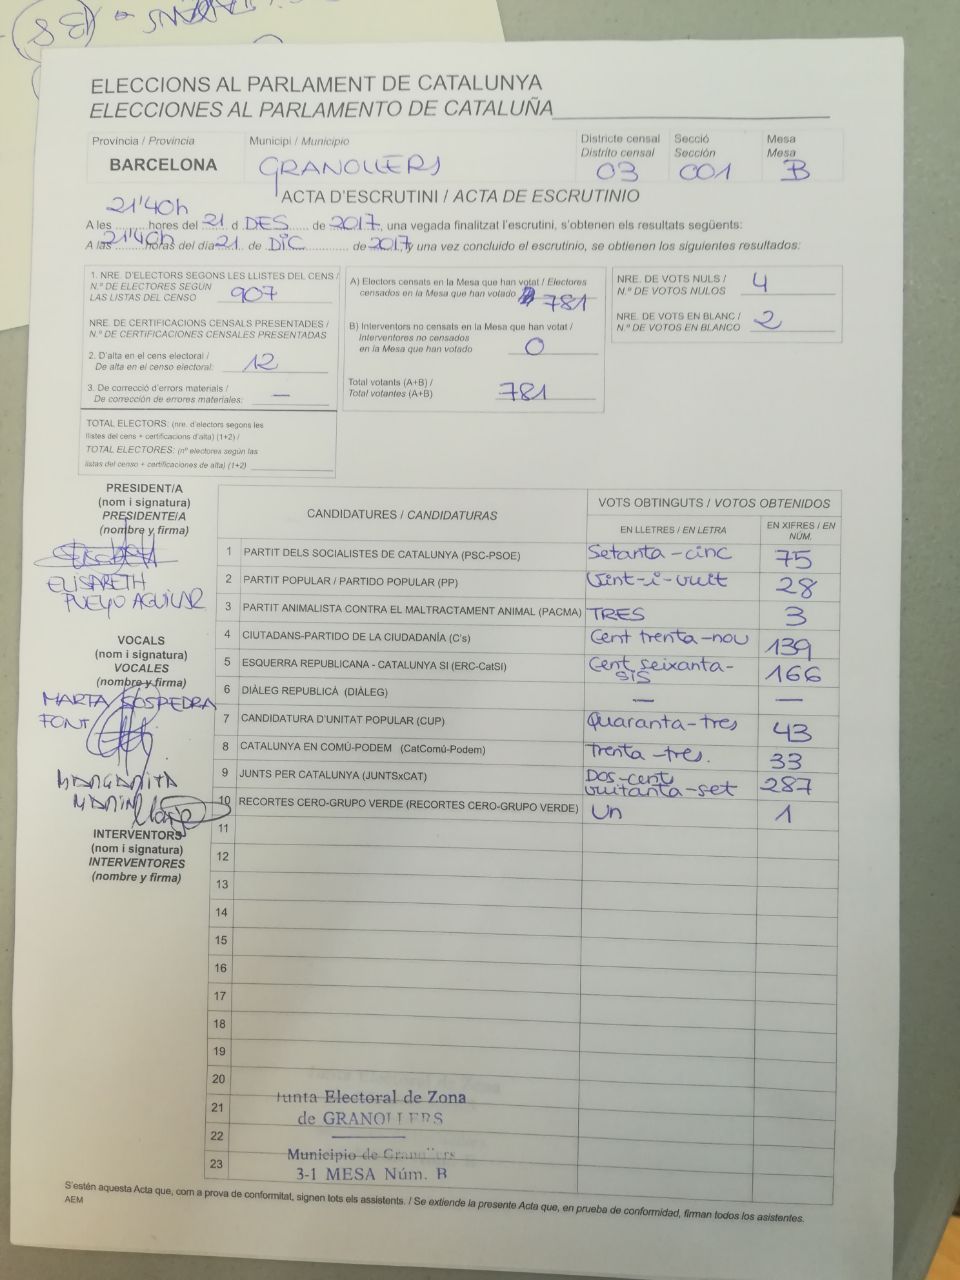 ELECCIONS AL PARLAMENT DE CATALUNYA
ELECCIONES AL PARLAMENTO DE CATALUÑA
Província / Provincia
BARCELONA
Municipi / Municipio
GRANOLLERS
Districte censal
Distrito censal
03
Secció
Sección
001
Mesa
Mesa
B
ACTA D'ESCRUTINI / ACTA DE ESCRUTINIO
A les 21'40h hores del 21 d DES de 2017, una vegada finalitzat l'escrutini, s'obtenen els resultats següents:
A las 21'40h horas del día 21 de DIC de 2017, y una vez concluido el escrutinio, se obtienen los siguientes resultados:
1. NRE. D'ELECTORS SEGONS LES LLISTES DEL CENS /
N.º DE ELECTORES SEGÚN
LAS LISTAS DEL CENSO 907
NRE. DE CERTIFICACIONS CENSALS PRESENTADES /
N.º DE CERTIFICACIONES CENSALES PRESENTADAS
2. D'alta en el cens electoral /
De alta en el censo electoral: 12
3. De correcció d'errors materials /
De corrección de errores materiales: —
TOTAL ELECTORS: (nre. d'electors segons les
llistes del cens + certificacions d'alta) (1+2) /
TOTAL ELECTORES: (nº electores según las
listas del censo + certificaciones de alta) (1+2)
A) Electors censats en la Mesa que han votat / Electores
censados en la Mesa que han votado 781
B) Interventors no censats en la Mesa que han votat /
Interventores no censados
en la Mesa que han votado 0
Total votants (A+B) /
Total votantes (A+B) 781
NRE. DE VOTS NULS /
N.º DE VOTOS NULOS 4
NRE. DE VOTS EN BLANC /
N.º DE VOTOS EN BLANCO 2
PRESIDENT/A
(nom i signatura)
PRESIDENTE/A
(nombre y firma)
ELISABETH
PUEYO AGUILAR
VOCALS
(nom i signatura)
VOCALES
(nombre y firma)
MARTA SOSPEDRA
FONT
MARGARITA
INTERVENTORS
(nom i signatura)
INTERVENTORES
(nombre y firma)
CANDIDATURES / CANDIDATURAS
VOTS OBTINGUTS / VOTOS OBTENIDOS
EN LLETRES / EN LETRA
EN XIFRES / EN NÚM.
1 PARTIT DELS SOCIALISTES DE CATALUNYA (PSC-PSOE) Setanta-cinc 75
2 PARTIT POPULAR / PARTIDO POPULAR (PP) Vint-i-vuit 28
3 PARTIT ANIMALISTA CONTRA EL MALTRACTAMENT ANIMAL (PACMA) TRES 3
4 CIUTADANS-PARTIDO DE LA CIUDADANÍA (C's) Cent trenta-nou 139
5 ESQUERRA REPUBLICANA - CATALUNYA SI (ERC-CatSI) Cent seixanta-sis 166
6 DIÀLEG REPUBLICÀ (DIÀLEG) — —
7 CANDIDATURA D'UNITAT POPULAR (CUP) Quaranta-tres 43
8 CATALUNYA EN COMÚ-PODEM (CatComú-Podem) Trenta-tres. 33
9 JUNTS PER CATALUNYA (JUNTSxCAT) Dos-cents vuitanta-set 287
10 RECORTES CERO-GRUPO VERDE (RECORTES CERO-GRUPO VERDE) Un 1
11
12
13
14
15
16
17
18
19
20
21
22
23
Junta Electoral de Zona
de GRANOLLERS
Municipio de Granollers
3-1 MESA Núm. B
S'estén aquesta Acta que, com a prova de conformitat, signen tots els assistents. / Se extiende la presente Acta que, en prueba de conformidad, firman todos los asistentes.
AEM